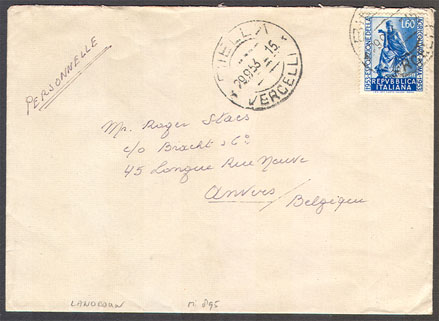 PERSONNELLE
BIELLA
29.9.53 -15
VERCELLI
L.60
REPVBBLICA
ITALIANA
Mr. Roger Staes
c/o Bracht & Co.
45 Longue Rue Neuve
Anvers
Belgique
n. 895